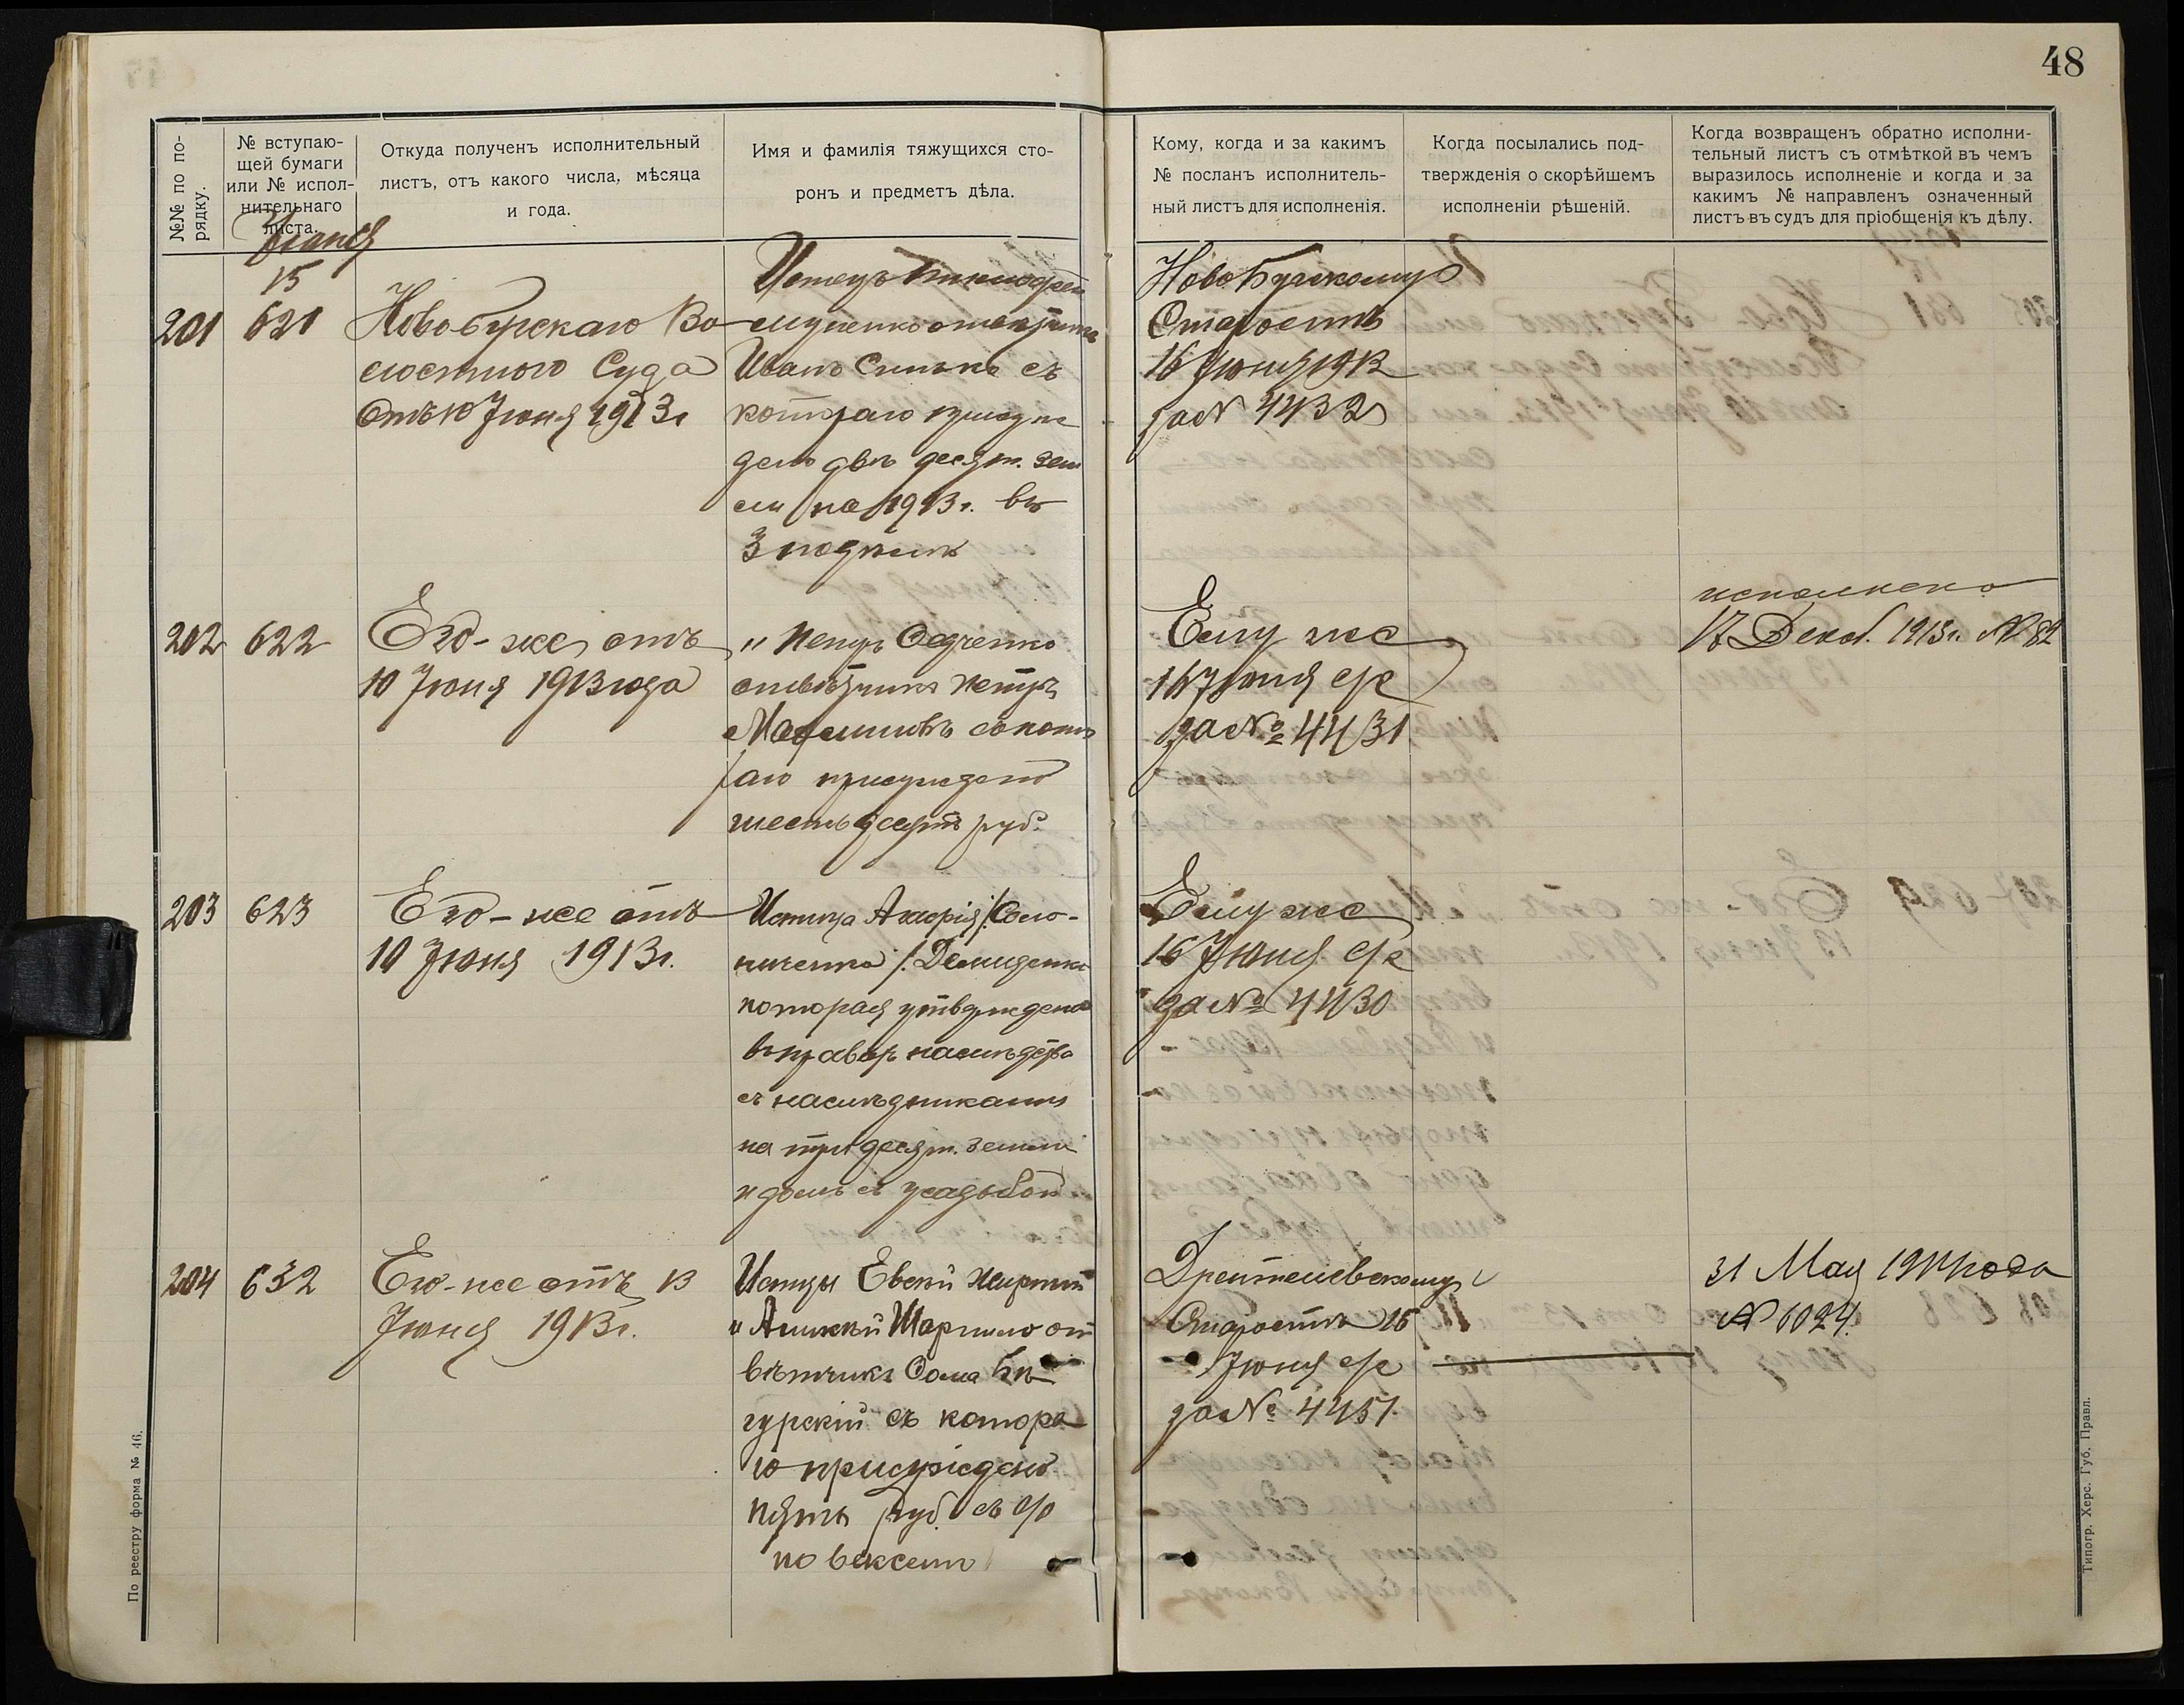 48
№№ по по-
рядку.
№ вступаю-
щей бумаги
или № испол-
нительнаго
листа.
Откуда полученъ исполнительный
листъ, отъ какого числа, мѣсяца
и года.
Имя и фамилія тяжущихся сто-
ронъ и предметъ дѣла.
Кому, когда и за какимъ
№ посланъ исполнитель-
ный листъ для исполненія.
Когда посылались под-
твержденія о скорѣйшемъ
исполненіи рѣшеній.
Когда возвращенъ обратно исполни-
тельный листъ съ отмѣткой въ чемъ
выразилось исполненіе и когда и за
какимъ № направленъ означенный
листъ въ судъ для пріобщенія къ дѣлу.
Іюня
15
201
621
Новобугскаго Во
лостного Суда
отъ 10 Іюня 1913г
Истецъ
Иванъ съ
котораго присуж
дено двѣ десят. зем
ли на 1913г. въ
Новобугскому
Старостѣ
16 Іюня 1913
за № 4432
202
622
Его-же отъ
10 Іюня 1913 года
" Петръ Федченко
отвѣтчикъ Петръ
съ кото
раго присуждено
шестьдесятъ руб.
Ему же
16 Іюня с/г
за № 4431
исполнено
17 Декаб. 1913г. № 82
203
623
Его-же отъ
10 Іюня 1913г.
Истица
Демиденко
которая утверждена
въ правахъ наслѣдства
съ наслѣдниками
на три десят. земли
и домъ съ усадьбой
Ему же
16 Іюня с/г
за № 4430
204
632
Его-же отъ 13
Іюня 1913г.
Истцы Евсѣй
" от
вѣтчикъ Фома
гурскій съ котора
го присуждено
пять руб. съ %
по векселю
Старостѣ 16
Іюня с/г
за № 4451.
31 Мая года
№ 6024.
По реестру форма № 46.
Типогр. Херс. Губ. Правл.